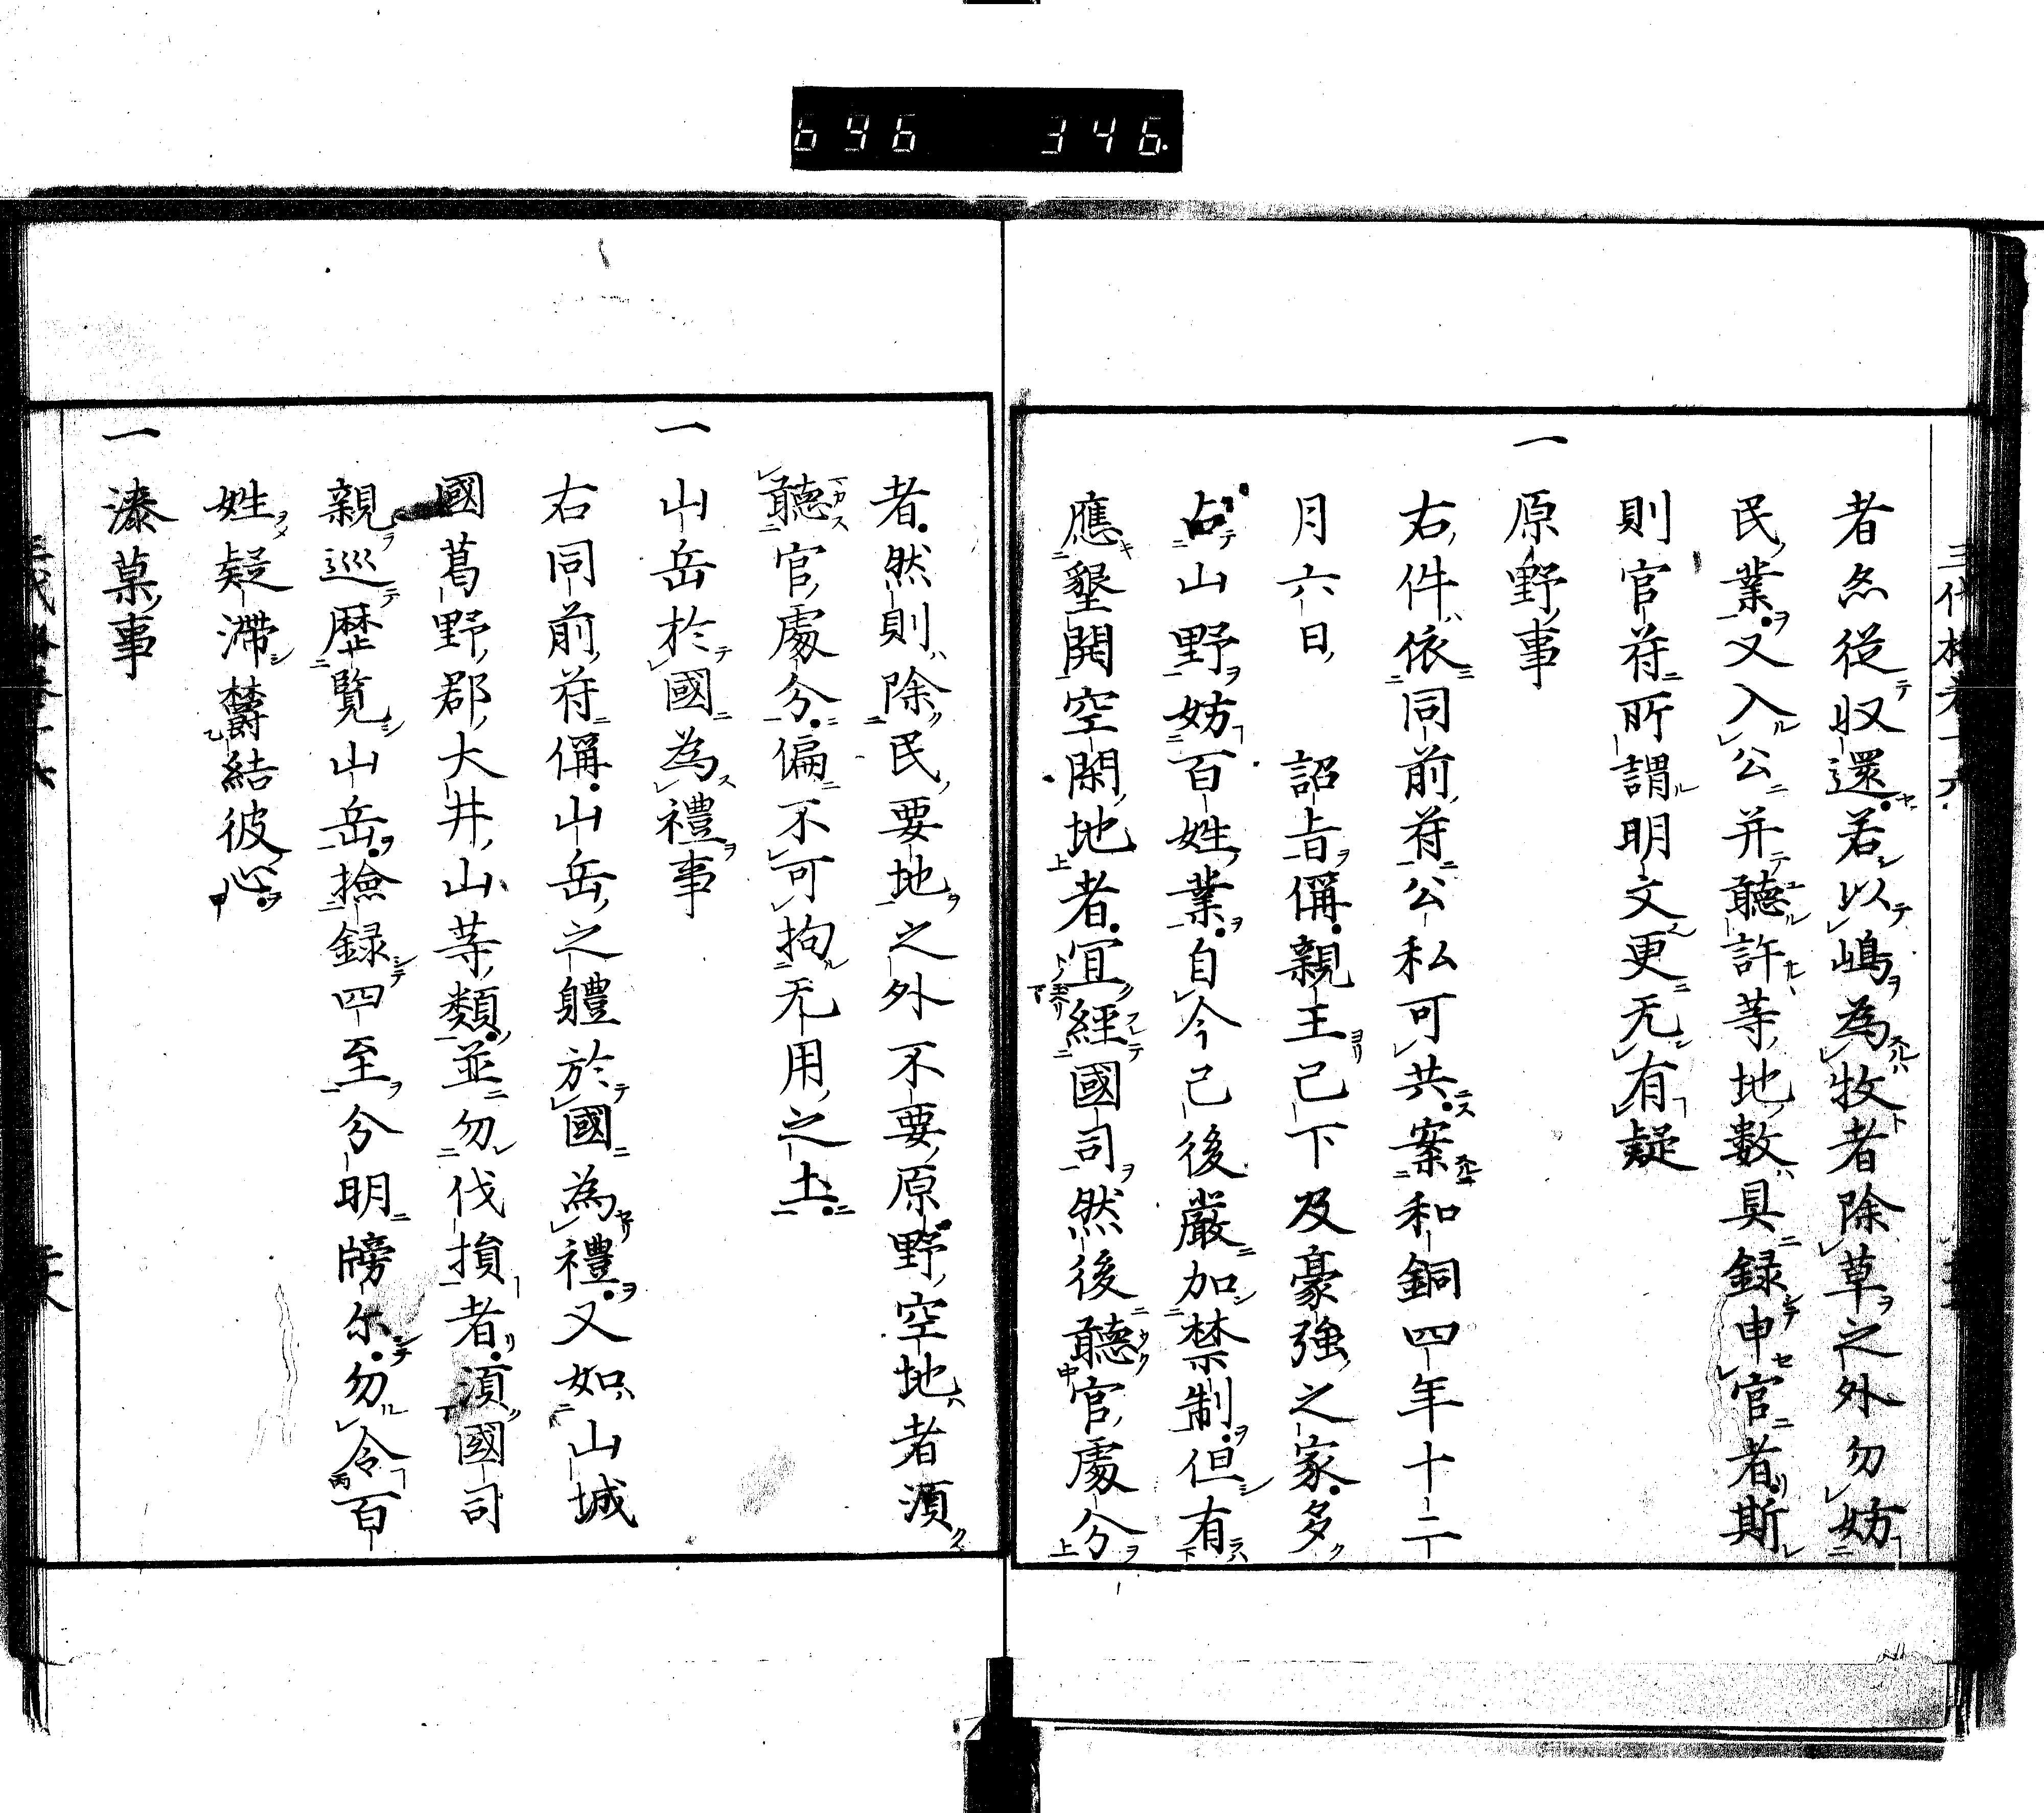 696 346
者亦從収還若以嶋為牧者除草之外勿妨
民業又入公并聽許等地数具録申官者斯
則官符所謂明文更无有疑
一原野事
右件依同前符公私可共案和銅四年十二
月六日 詔旨偁親王己下及豪強之家多
占山野妨百姓業自今己後嚴加禁制但有
應墾開空閑地者宜經國司然後聽官處分
者然則除民要地之外不要原野空地者湏
聽官處分偏不可拘无用之土
一山岳於國為禮事
右同前符偁山岳之軆於國為禮又如山城
國葛野郡大井山等類並勿伐損者湏國司
親巡歴覧山岳撿録四至分明牓尓勿令百
姓疑滯欝結彼心
一漆菓事